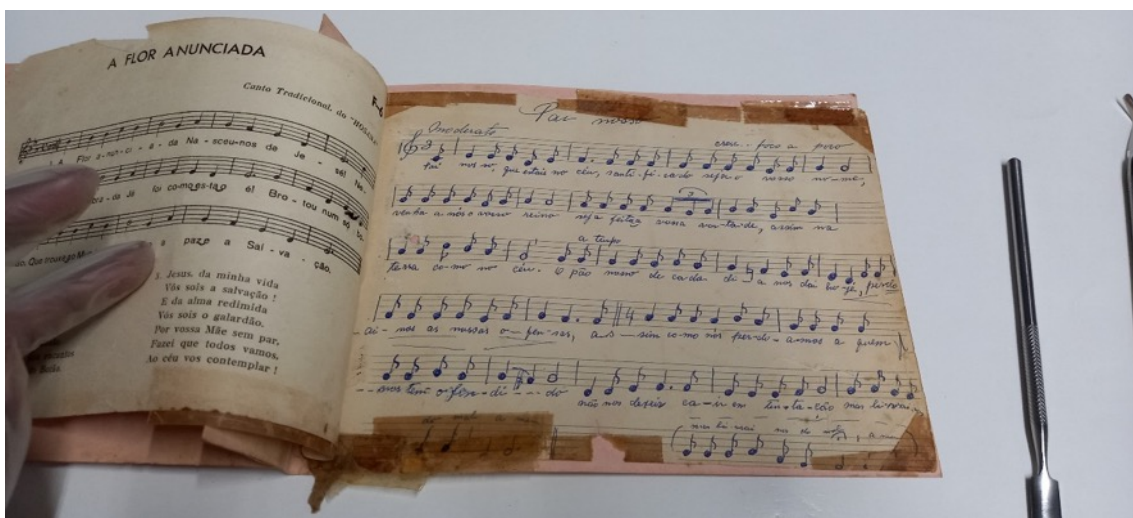 A FLOR ANUNCIADA
Canto Tradicional, do "HOSANA
Flor a-nun-ci-a-da Na-sceu-nos de Je-sé! Ne-
ora-da Já foi co-mo es-tá o é! Bro-tou num só
a paz e a Sal-va-ção.
1. Jesus, da minha vida
Vós sois a salvação!
E da alma redimida
Vós sois o galardão.
Por vossa Mãe sem par,
Fazei que todos vamos,
Ao céu vos contemplar!
Pai nosso
Moderato
cresc. poco a poco
Pai nosso, que estais no céu, santi-fi-cado seja o vosso no-me,
venha a nós o vosso reino seja feita a vossa von-ta-de, assim na
a tempo
terra co-mo no céu. O pão nosso de cada di-a nos dai ho-je, perdo
ai-nos as nossas o-fen-sas, as-sim co-mo nós perdo-amos a quem
nos tem ofen-di-do não nos deixeis ca-ir em ten-ta-ção mas li-vrai
mas li-vrai nos do